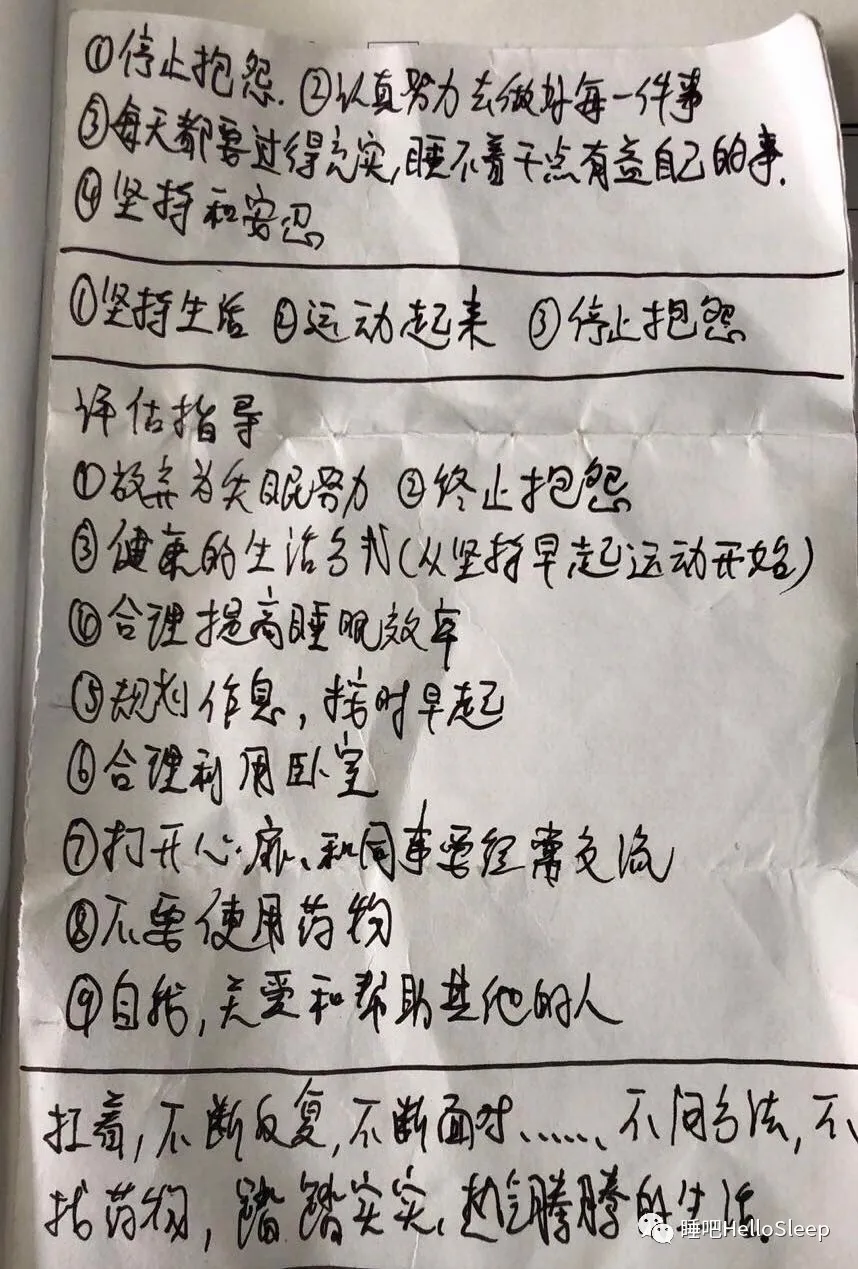 ①停止抱怨.②认真努力去做好每一件事
③每天都要过得充实,睡不着干点有益自己的事.
④坚持和安忍
①坚持生活 ②运动起来 ③停止抱怨
评估指导
①放弃为失眠努力 ②终止抱怨
③健康的生活方式(从坚持早起运动开始)
④合理提高睡眠效率
⑤规划作息,按时早起
⑥合理利用卧室
⑦打开心扉、和同事要经常交流
⑧不要使用药物
⑨自我,关爱和帮助其他的人
扛着,不断反复,不断面对、……、不问方法,不
找药物,踏踏实实、热气腾腾的生活.
睡吧HelloSleep